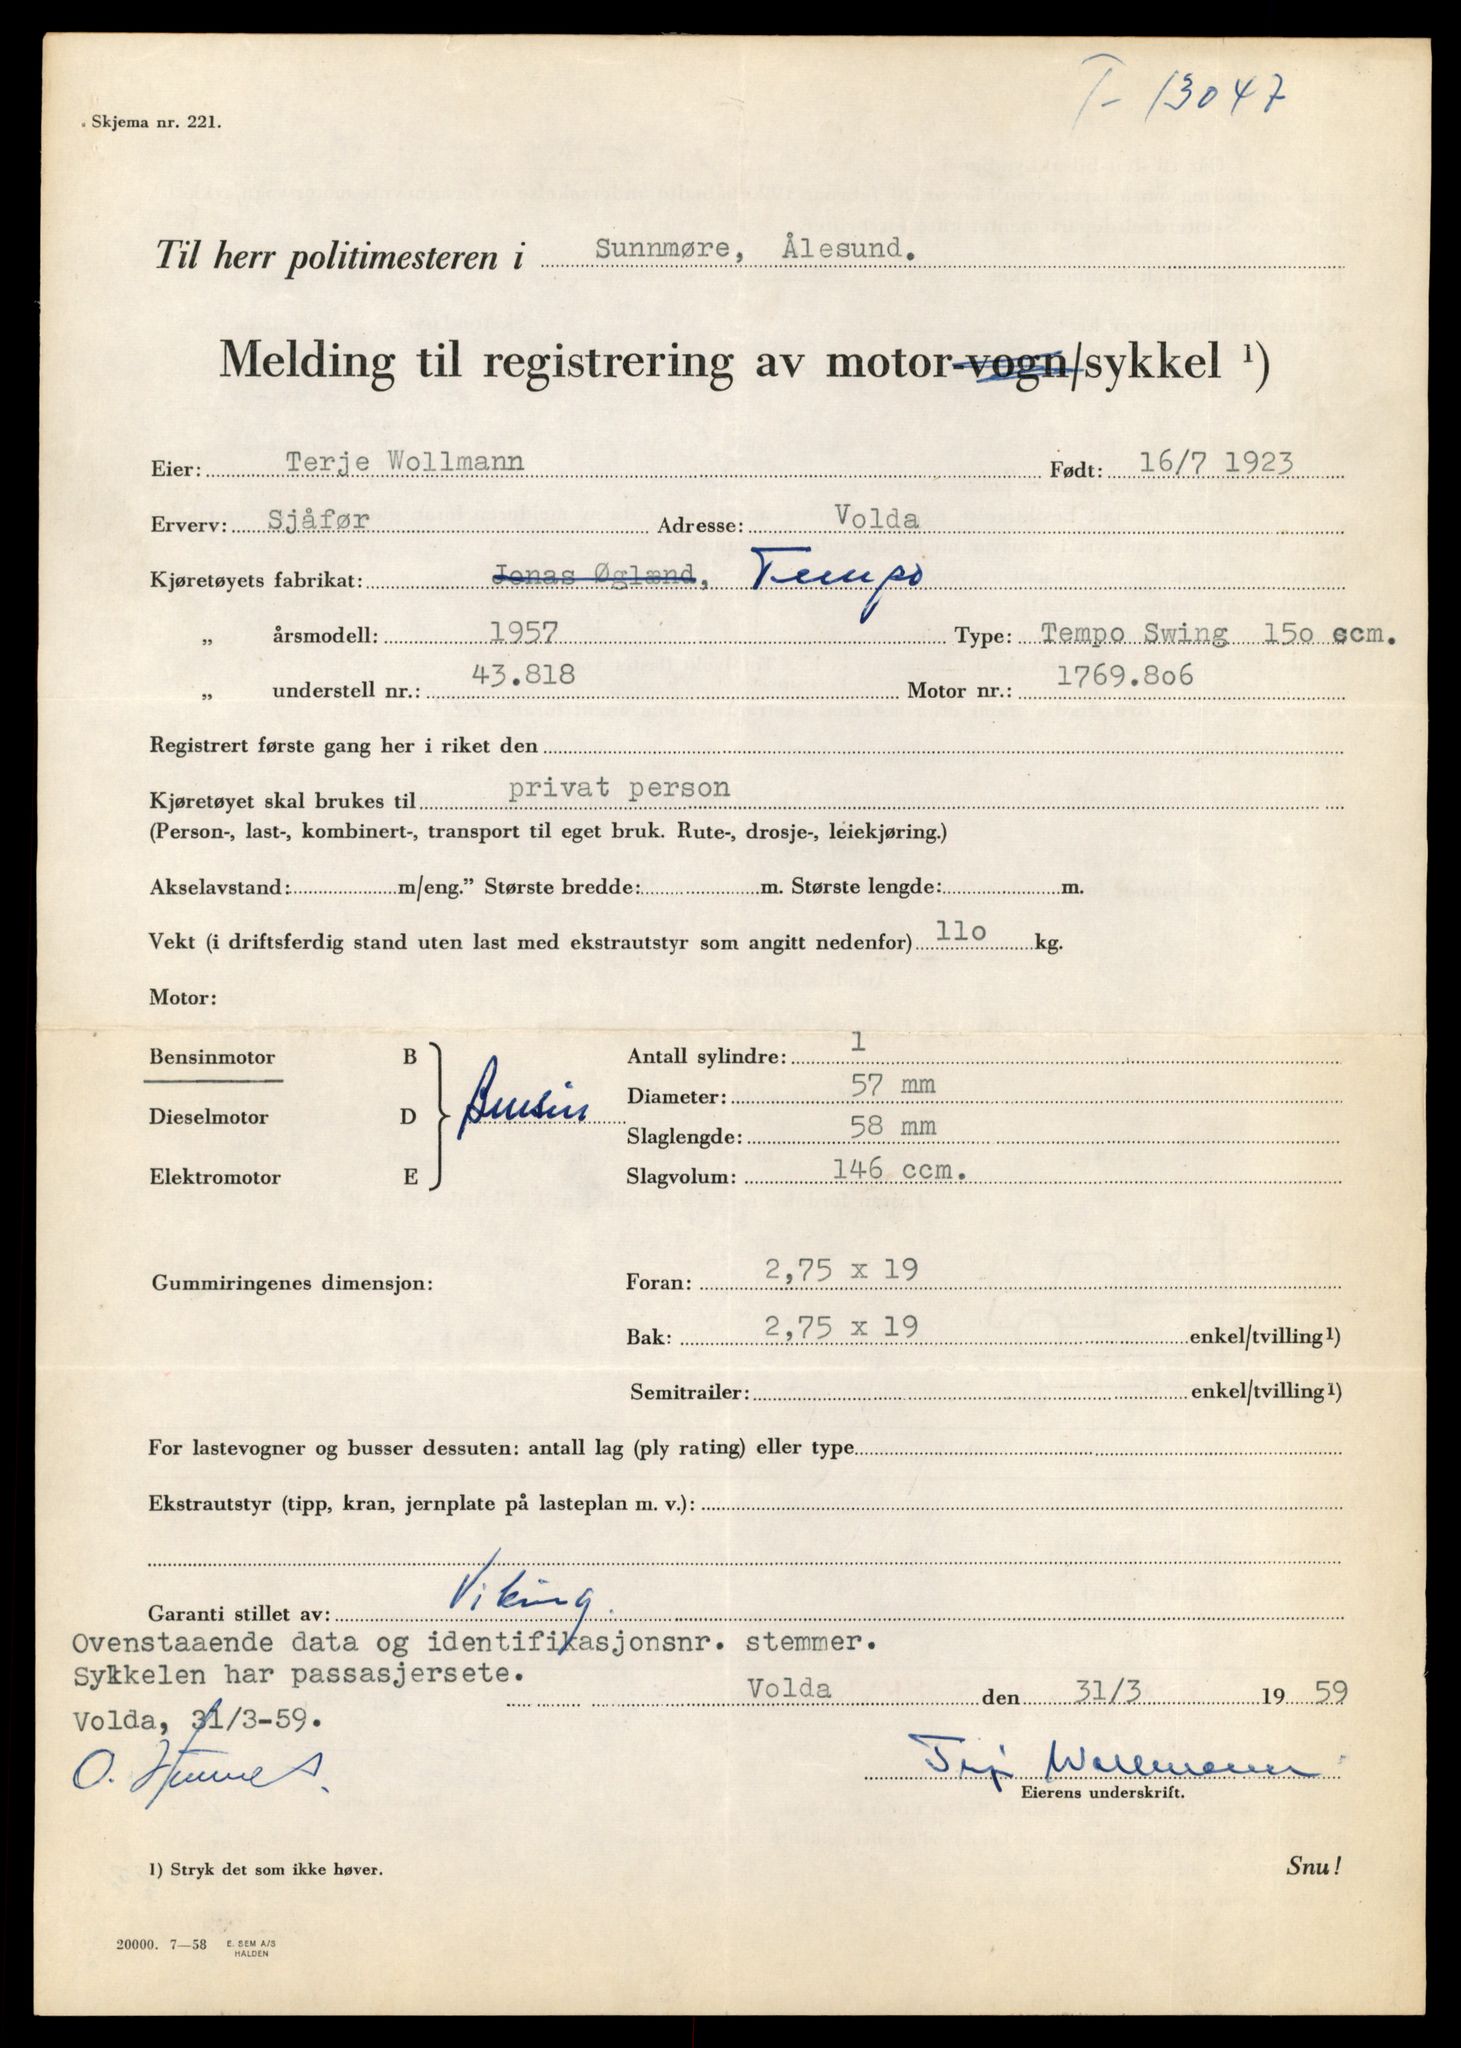 T- 13047
Skjema nr. 221.
Til herr politimesteren i Sunnmøre, Ålesund.
Melding til registrering av motor-vogn/sykkel ¹)
Eier: Terje Wollmann Født: 16/7 1923
Erverv: Sjåfør Adresse: Volda
Kjøretøyets fabrikat: Jonas Øglænd, Tempo
„ årsmodell: 1957 Type: Tempo Swing 15o ccm.
„ understell nr.: 43.818 Motor nr.: 1769.8o6
Registrert første gang her i riket den
Kjøretøyet skal brukes til privat person
(Person-, last-, kombinert-, transport til eget bruk. Rute-, drosje-, leiekjøring.)
Akselavstand: m/eng.” Største bredde: m. Største lengde: m.
Vekt (i driftsferdig stand uten last med ekstrautstyr som angitt nedenfor) 11o kg.
Motor:
Bensinmotor B Antall sylindre: 1
Diameter: 57 mm
Dieselmotor D Bensin
Slaglengde: 58 mm
Elektromotor E Slagvolum: 146 ccm.
Gummiringenes dimensjon: Foran: 2,75 x 19
Bak: 2,75 x 19 enkel/tvilling¹)
Semitrailer: enkel/tvilling¹)
For lastevogner og busser dessuten: antall lag (ply rating) eller type
Ekstrautstyr (tipp, kran, jernplate på lasteplan m. v.):
Garanti stillet av: Viking.
Ovenstaaende data og identifikasjonsnr. stemmer.
Sykkelen har passasjersete.
Volda den 31/3 19 59
Volda, 31/3-59.
O.
Terje Wollmann
Eierens underskrift.
1) Stryk det som ikke høver.
Snu!
20000. 7—58 E. SEM A/S
HALDEN